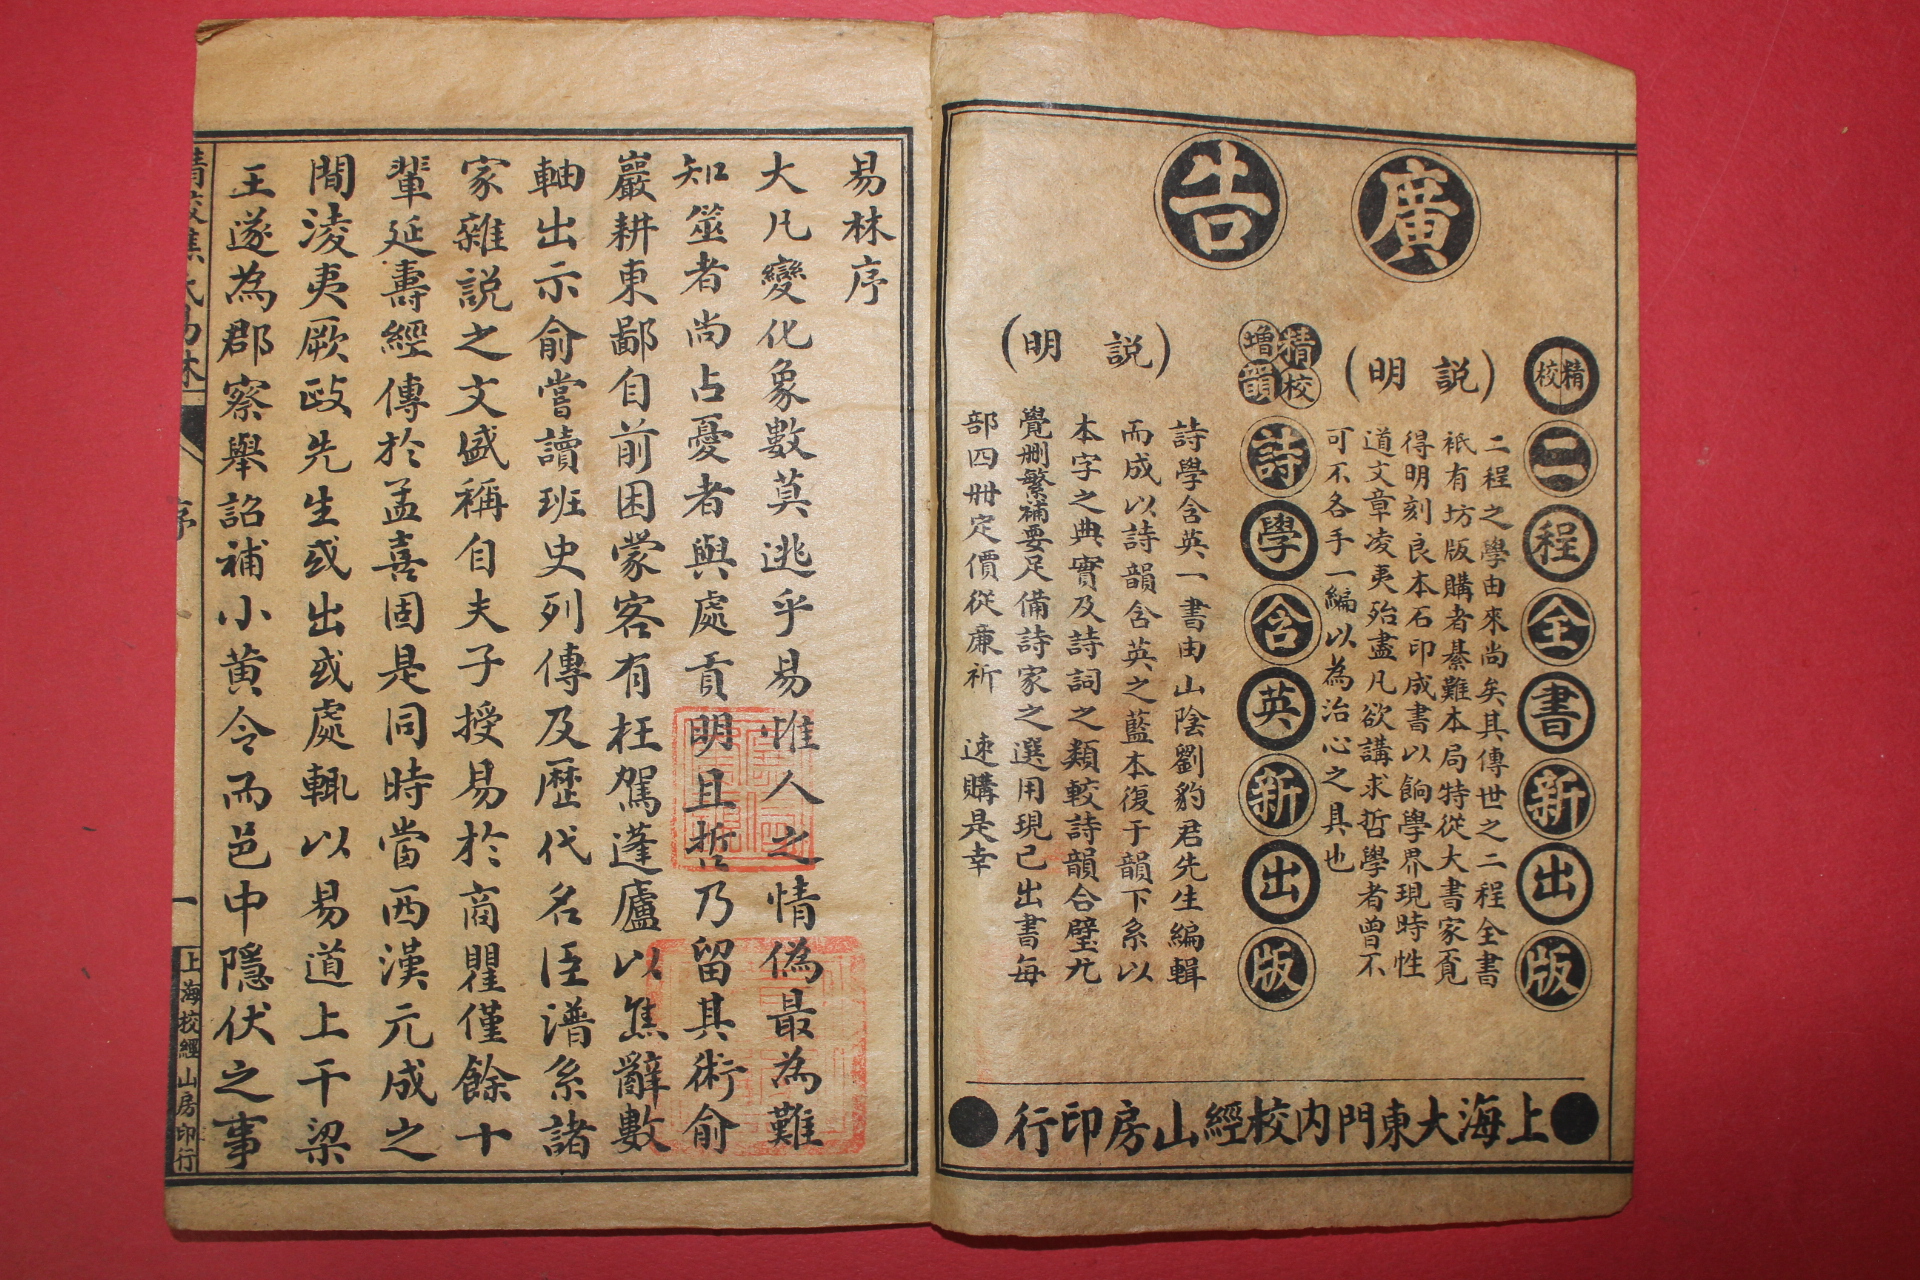 廣告
精校二程全書新出版
（說明）
二程之學由來尚矣其傳世之二程全書
衹有坊版購者綦難本局特從大書家覔
得明刻良本石印成書以餉學界現時性
道文章凌夷殆盡凡欲講求哲學者曾不
可不各手一編以為治心之具也
精校增韻詩學含英新出版
（說明）
詩學含英一書由山陰劉豹君先生編輯
而成以詩韻含英之藍本復于韻下系以
本字之典實及詩詞之類較詩韻合璧尤
覺刪繁補要足備詩家之選用現已出書每
部四冊定價從廉祈 速購是幸
上海大東門內校經山房印行
易林序
大凡變化象數莫逃乎易惟人之情偽最為難
知筮者尚占憂者與處貢明且哲乃留其術俞
巖耕東鄙自前困蒙客有枉駕蓬廬以焦辭數
軸出示俞嘗讀班史列傳及歷代名臣譜系諸
家雜說之文盛稱自夫子授易於商瞿僅餘十
輩延壽經傳於孟喜固是同時當西漢元成之
間淩夷厥政先生或出或處輒以易道上干梁
王遂為郡察舉詔補小黃令而邑中隱伏之事
精校焦氏易林
序
一
上海校經山房印行